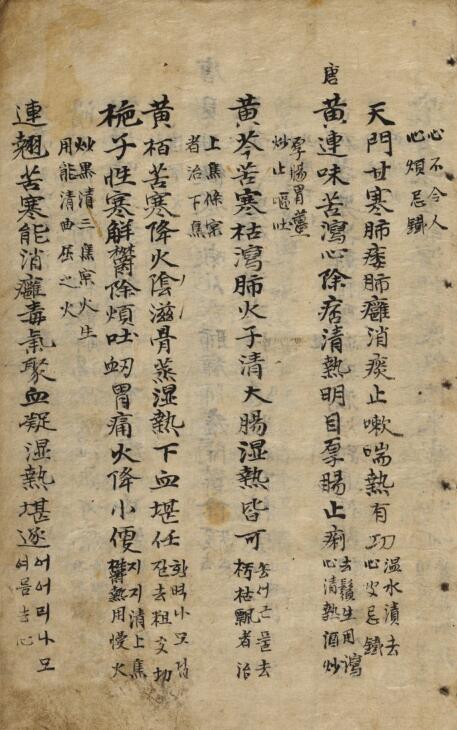 心不令人
心煩忌鐵
天門甘寒肺痿肺癰消痰止嗽喘熱有功
溫水漬去
心皮忌鐵
唐
黃連味苦瀉心除痞清熱明目厚腸止痢
去鬚生用瀉
心清熱酒炒
厚腸胃薑
炒止嘔吐
黃芩苦寒枯瀉肺火子清大腸湿熱皆可
去
朽枯飄者治
上焦條宲
者治下焦
黃栢苦寒降火陰滋骨蒸湿熱下血堪任
나모
去粗皮切
梔子性寒解欝除煩吐衂胃痛火降小便
지지清上焦
欝熱用慢火
炒黑清三焦宲火生
用能清曲屈之火
連翹苦寒能消癰毒氣聚血凝湿熱堪逐
어어리나모
여름去心